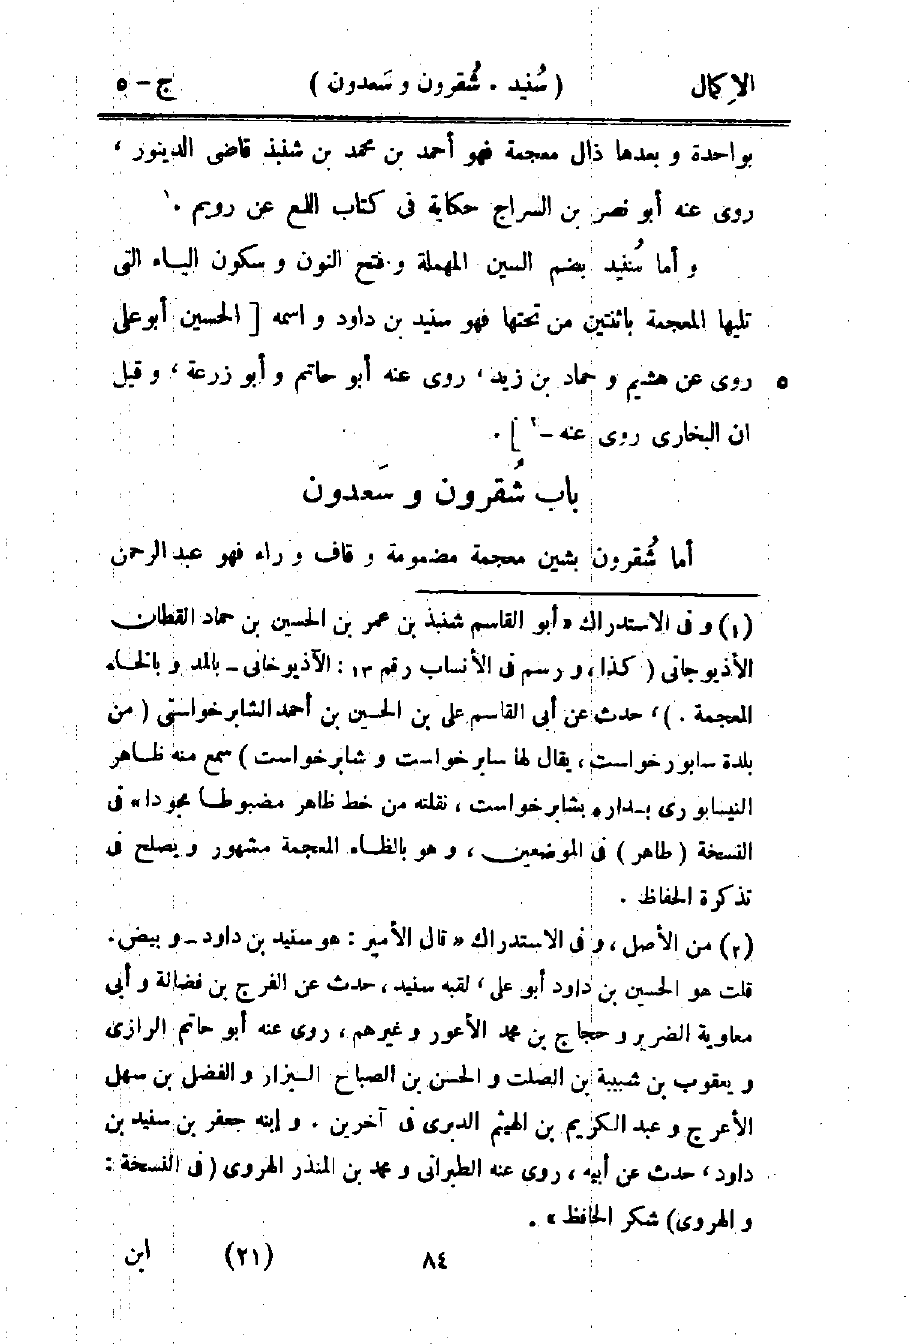 الإكمال ( سُنيد . شُقرون و سَعدون ) ج – ٥
بواحدة و بعدها ذال معجمة فهو أحمد بن محمد بن شنبذ قاضى الدينور ،
روى عنه أبو نصر بن السراج حكاية فى كتاب اللمع عن رويم .¹
و أما سُنيد بضم السين المهملة و فتح النون و سكون الياء التى
تليها المعجمة باثنتين من تحتها فهو سنيد بن داود و اسمه [ الحسين أبو على
روى عن هشيم و حماد بن زيد ، روى عنه أبو حاتم و أبو زرعة ، و قيل ٥
ان البخارى روى عنه –² ] .
باب شُقرون و سَعدون
أما شُقرون بشين معجمة مضمومة و قاف و راء فهو عبد الرحمن
(١) و فى الاستدراك « أبو القاسم شنبذ بن عمر بن الحسين بن حماد القطان
الأذيوجانى ( كذا ، و رسم فى الأنساب رقم ١٣ : الآذيوخانى – بالمد و بالخاء
المعجمة . ) ، حدث عن أبى القاسم على بن الحسين بن أحمد الشابرخواستى ( من
بلدة سابور خواست ، يقال لها سابرخواست و شابرخواست ) سمع منه ظاهر
النيسابورى بداره بشابرخواست ، نقلته من خط ظاهر مضبوطا مجودا » فى
النسخة ( طاهر ) فى الموضعين ، و هو بالظاء المعجمة مشهور و يصلح فى
تذكرة الحفاظ .
(٢) من الأصل ، و فى الاستدراك « قال الأمير : هو سنيد بن داود – و بيض .
قلت هو الحسين بن داود أبو على ، لقبه سنيد ، حدث عن الفرج بن فضالة و أبى
معاوية الضرير و حجاج بن محمد الأعور و غيرهم ، روى عنه أبو حاتم الرازى
و يعقوب بن شيبة بن الصلت و الحسن بن الصباح البزار و الفضل بن سهل
الأعرج و عبد الكريم بن الهيثم الديرى فى آخرين . و إبنه جعفر بن سنيد بن
داود ، حدث عن أبيه ، روى عنه الطبرانى و محمد بن المنذر الهروى ( فى النسخة :
و الهروى) شكر الحافظ » .
٨٤ (٢١) ابن